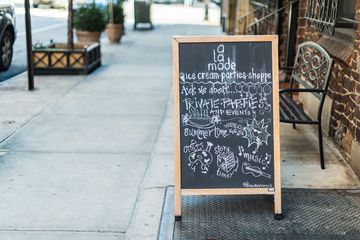 a
la
mode
ice cream parties shoppe
Ask us about...
PRIVATE PARTIES
AND EVENTS
Summertime
crafts
story
time!
music